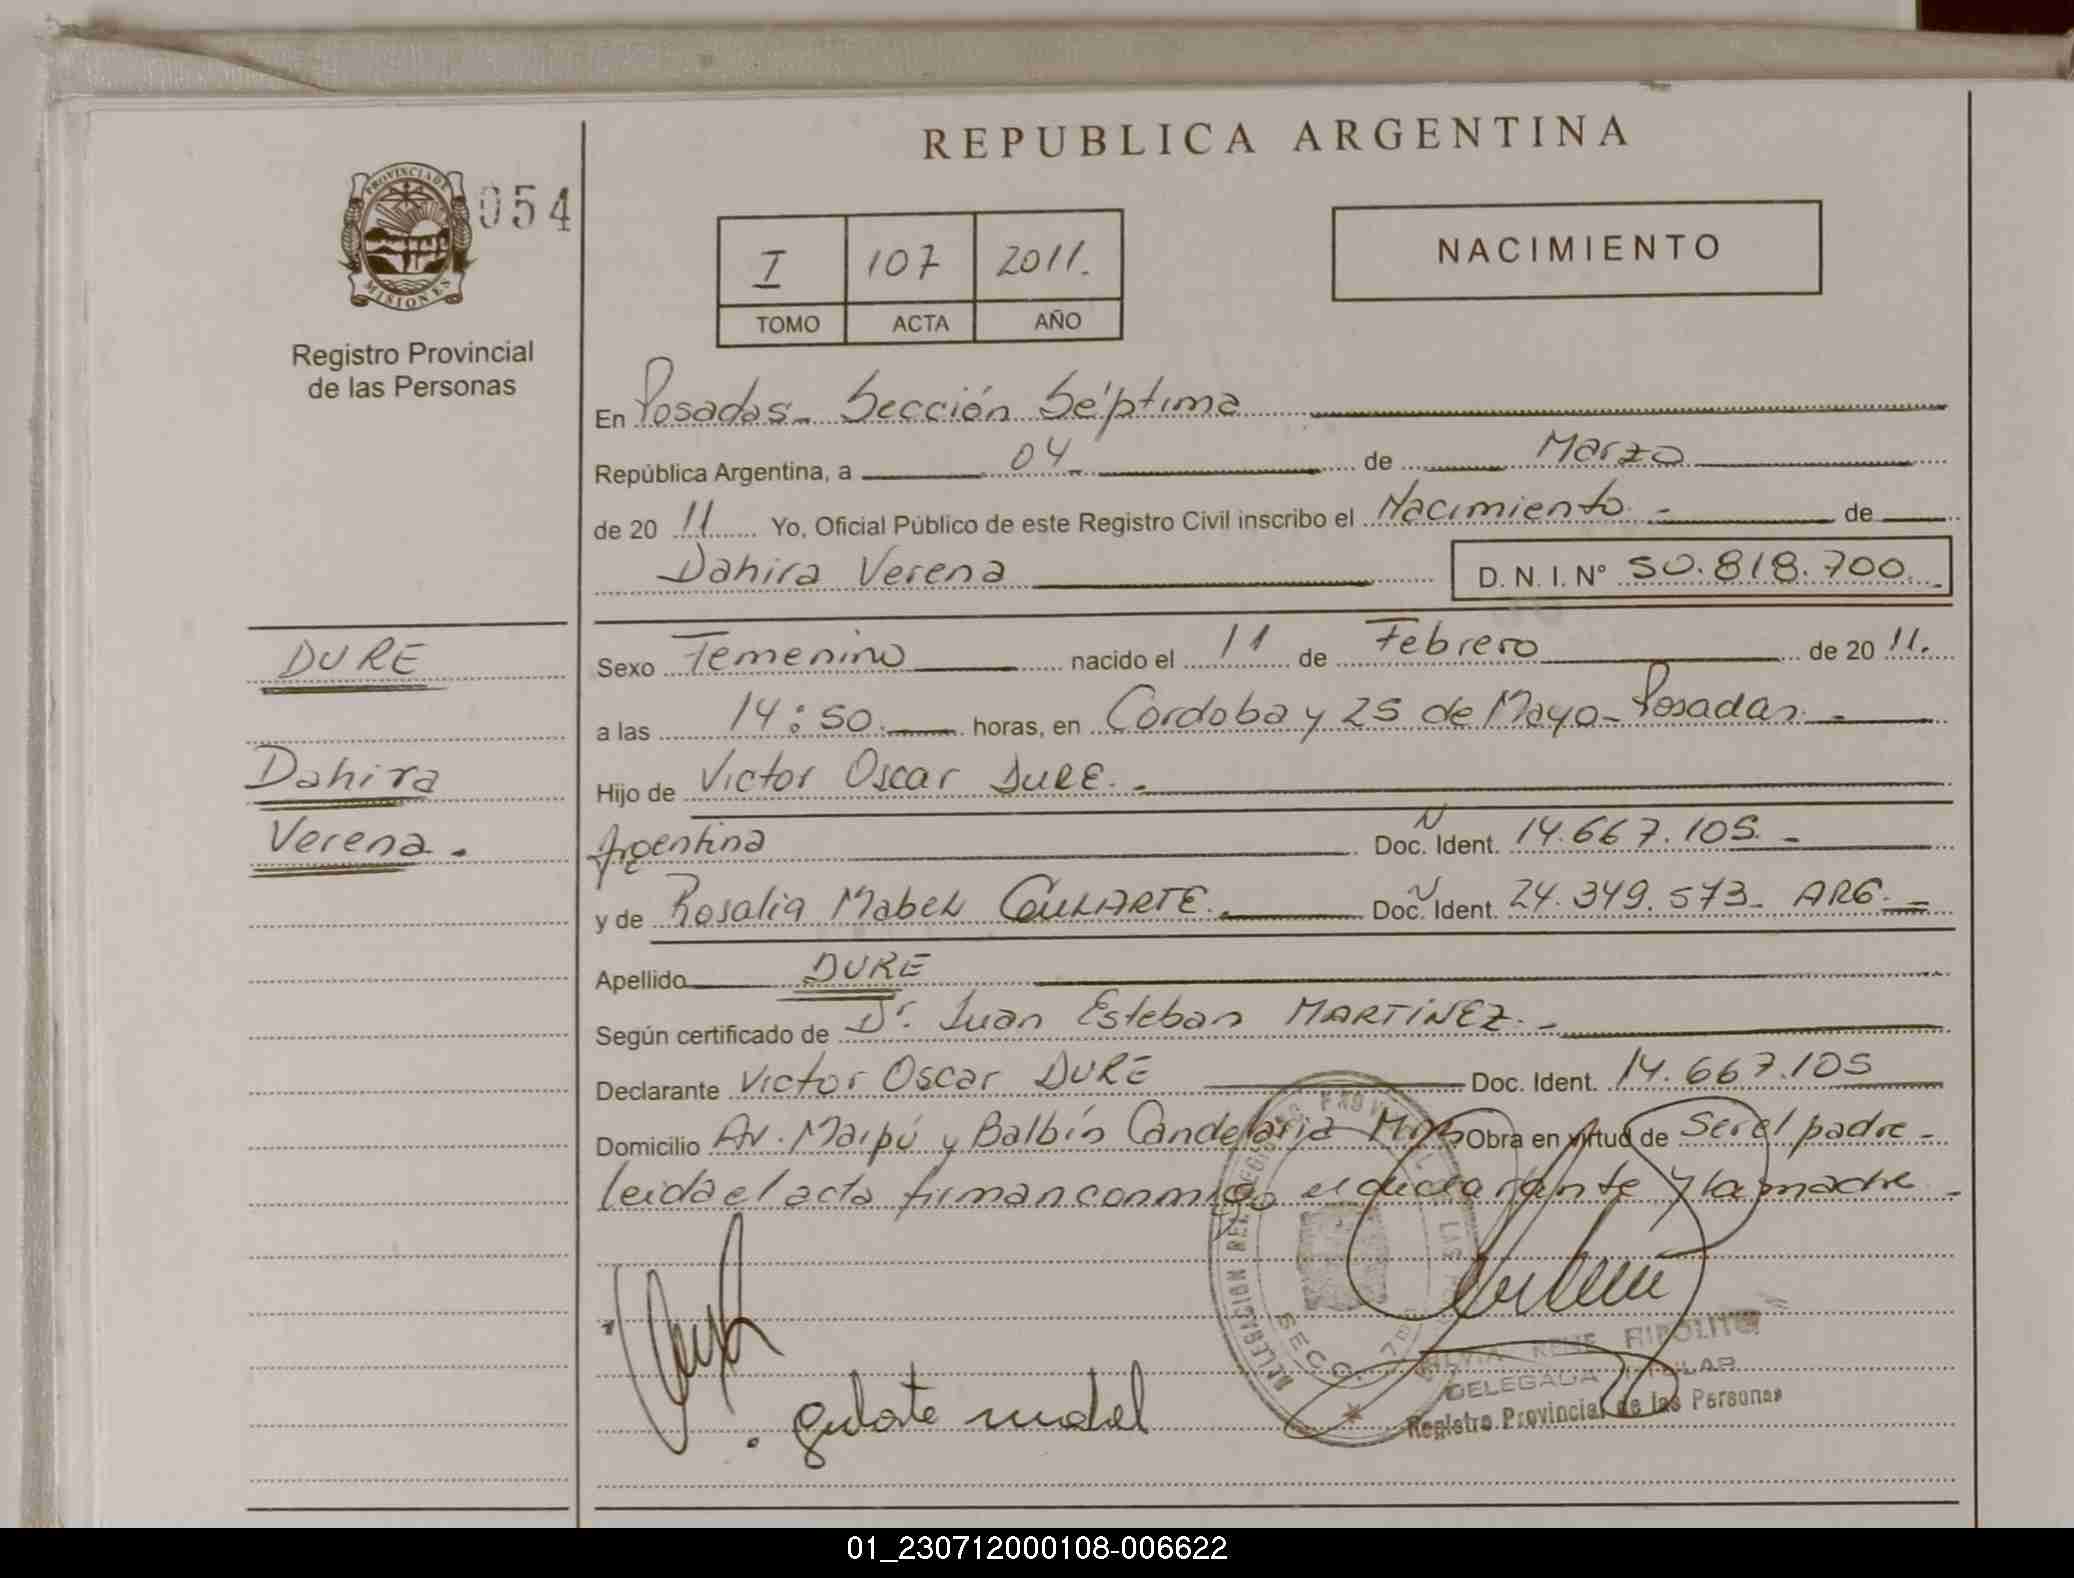 REPUBLICA ARGENTINA
PROVINCIA DE
MISIONES
054
Registro Provincial
de las Personas
I 107 2011.
TOMO ACTA AÑO
NACIMIENTO
En Posadas - Sección Séptima
República Argentina, a 04 de Marzo
de 2011 Yo, Oficial Público de este Registro Civil inscribo el Nacimiento - de
Dahira Verena D. N. I. N° 50.818.700.-
DURE
Dahira
Verena.
Sexo Femenino nacido el 11 de Febrero de 2011.
a las 14:50. horas, en Cordoba y 25 de Mayo - Posadas. -
Hijo de Victor Oscar DURE. -
Argentina Doc. N Ident. 14.667.105. -
y de Rosalia Mabel GULARTE. Doc. N Ident. 24.349.573- ARG. -
Apellido DURE
Según certificado de Dr. Juan Esteban MARTINEZ. -
Declarante Victor Oscar DURE Doc. Ident. 14.667.105
Domicilio Av. Maipú y Balbín Candelaria Mnes Obra en virtud de ser el padre -
leida el acta firman conmigo el declarante y la madre -
gularte mabel
DELEGACION REL REGISTRO PROVINCIAL LAS
SECC. 7
HIPOLITO
DELEGADA TITULAR
Registro Provincial de las Personas
01_230712000108-006622